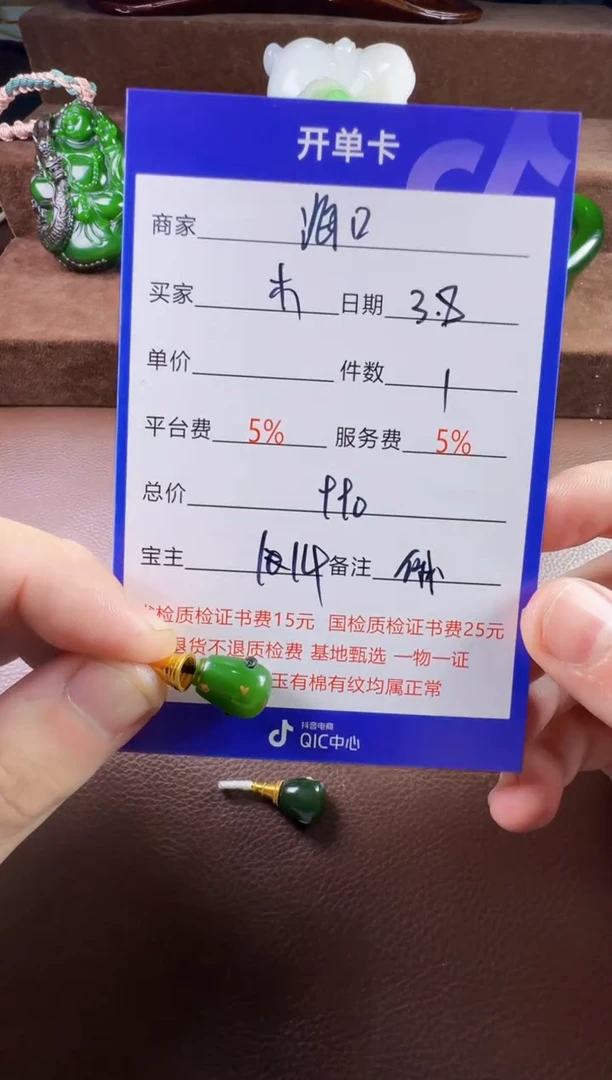 开单卡
商家 海口
买家 日期 3.8
单价 件数 1
平台费 5% 服务费 5%
总价 990
宝主 备注
检质检证书费15元 国检质检证书费25元
退货不退质检费 基地甄选 一物一证
玉有棉有纹均属正常
抖音电商
QIC中心